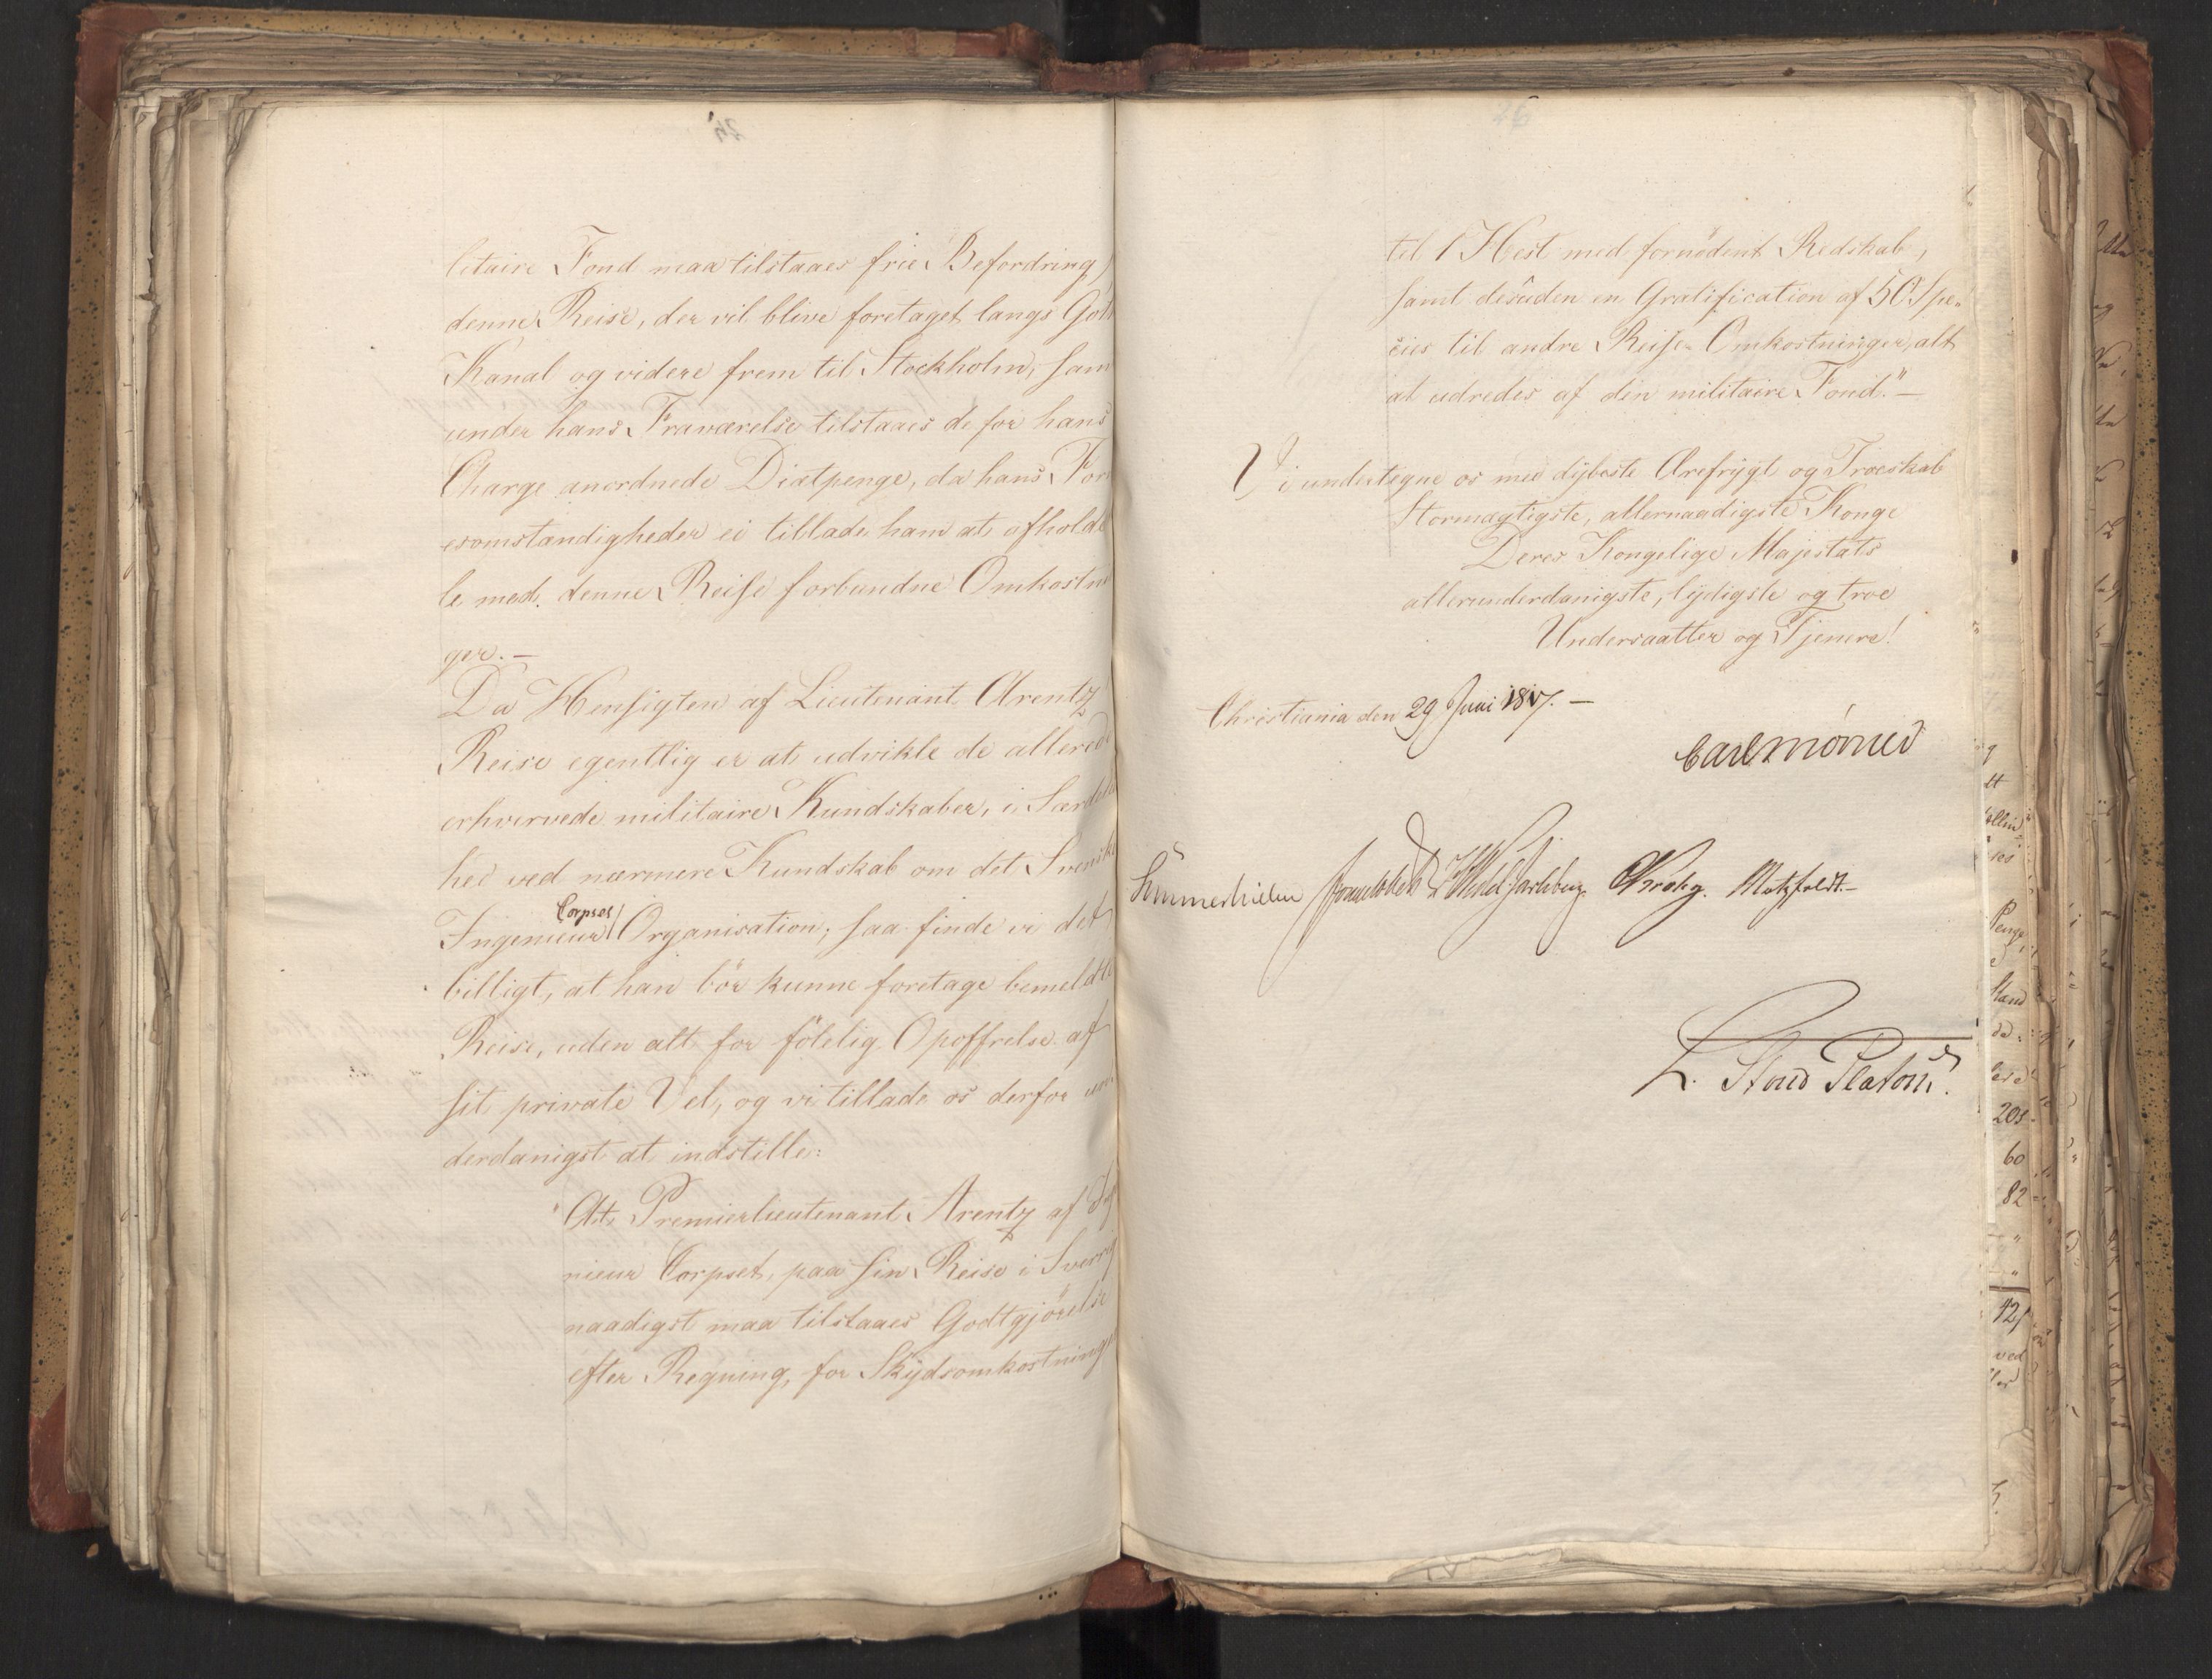 litaire Fond maa tilstaaes frie Befordring
denne Reise, der vil blive foretaget langs Göt
Kanal og videre frem til Stockholm, sam
under hans Fraværelse tilstaaes de for hans
Charge anordnede Diætpenge, da hans For
esomstændigheder ei tillade ham at afholde
le med denne Reise forbundne Omkostnin
ger. —
Da Hensigten af Lieutenant Arentz
Reise egentlig er at udvikle de allerede
erhvervede militaire Kundskaber, i Særdeles
hed ved nærmere Kundskab om det Svenske
Corpses
Ingenieur Organisation, saa finde vi det
billigt, at han bör kunne foretage bemeldte
Reise, uden alt for fölelig Opoffrelse af
sit private Vel, og vi tillade os derfor un
derdanigst at indstille:
"At Premierlieutenant Arentz af Inge
nieur Corpset, paa sin Reise i Sverrig
naadigst maa tilstaaes Godtgjörelse
efter Regning, for Skydsomkostninger
26
til 1 Hest med fornödent Redskab,
samt desuden en Gratification af 50 Spe-
cies til andre Reise-Omkostninger, alt
at udredes af den militaire Fond." —
Vi undertegne os med dybeste Ærefrygt og Troeskab
Stormægtigste, allernaadigste Konge
Deres Kongelige Majestæts
allerunderdanigste, lydigste og troe
Undersaatter og Tjenere!
Christiania den 29 Juni 1817. —
Carl Mörner
Sommerhielm Wedel Jarlsberg. Krohg. Motzfeldt. —
L. Stoud Platou.